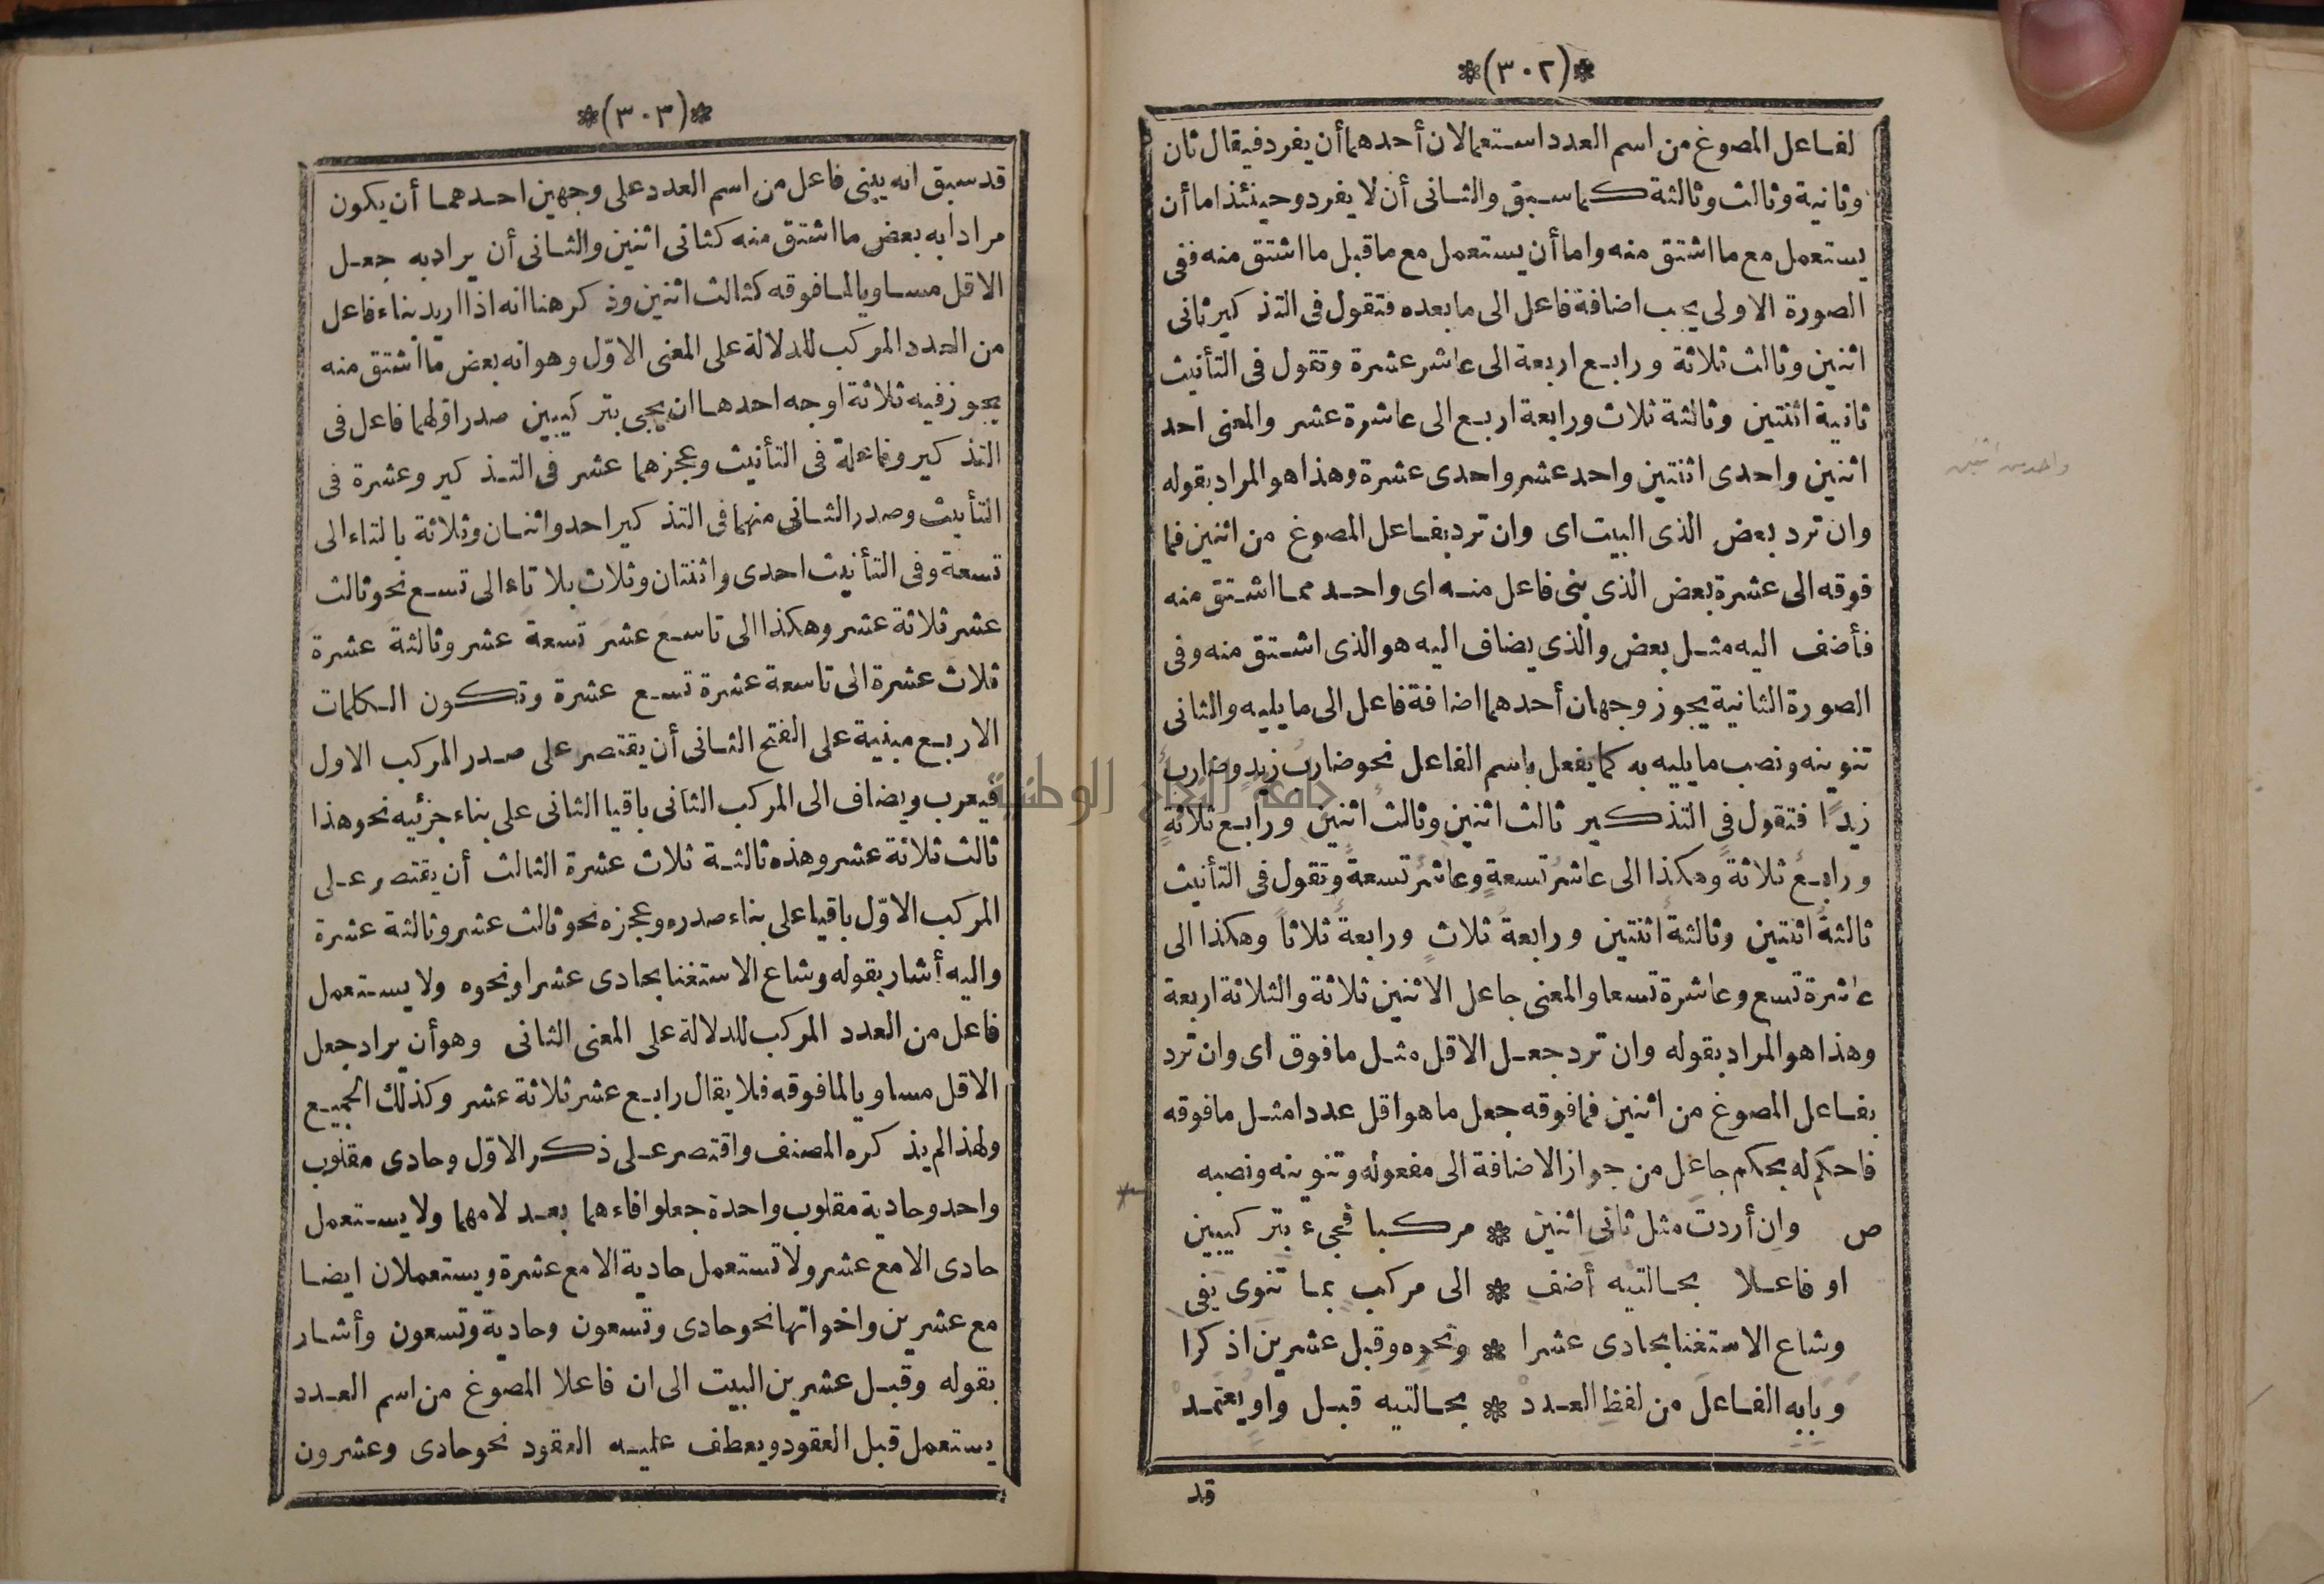 *(٣٠٢)*
لفاعل المصوغ من اسم العدد استعمالان أحدهما أن يفرد فيقال ثان
وثانية وثالث وثالثة كما سبق والثانى أن لا يفرد وحينئذ اما أن
يستعمل مع ما اشتق منه واما أن يستعمل مع ما قبل ما اشتق منه ففى
الصورة الاولى يجب اضافة فاعل الى ما بعده فتقول فى التذكير ثانى
اثنين وثالث ثلاثة ورابع اربعة الى عاشر عشرة وتقول فى التأنيث
ثانية اثنتين وثالثة ثلاث ورابعة اربع الى عاشرة عشر والمعنى احد
اثنين واحدى اثنتين واحد عشر واحدى عشرة وهذا هو المراد بقوله
وان ترد بعض الذى البيت اى وان ترد بفاعل المصوغ من اثنين فما
فوقه الى عشرة بعض الذى بنى فاعل منه اى واحد مما اشتق منه
فأضف اليه مثل بعض والذى يضاف اليه هو الذى اشتق منه وفى
الصورة الثانية يجوز وجهان أحدهما اضافة فاعل الى ما يليه والثانى
تنوينه ونصب ما يليه به كما يفعل باسم الفاعل نحو ضارب زيد وضارب
زيدًا فتقول فى التذكير ثالث اثنين وثالث اثنين ورابع ثلاثةٍ
ورابع ثلاثةً وهكذا الى عاشر تسعةٍ وعاشر تسعةً وتقول فى التأنيث
ثالثة اثنتين وثالثة اثنتين ورابعة ثلاثٍ ورابعة ثلاثاً وهكذا الى
عاشرة تسع وعاشرة تسعا والمعنى جاعل الاثنين ثلاثة والثلاثة اربعة
وهذا هو المراد بقوله وان ترد جعل الاقل مثل ما فوق اى وان ترد
بفاعل المصوغ من اثنين فما فوقه جعل ما هو اقل عددا مثل ما فوقه
فاحكم له بحكم جاعل من جواز الاضافة الى مفعوله وتنوينه ونصبه
ص وان أردت مثل ثانى اثنين * مركبا فجىء بتركيبين
او فاعلا بحالتيه أضف * الى مركب بما تنوى يفى
وشاع الاستغنا بحادى عشرا * ونحوه وقبل عشرين اذكرا
وبابه الفاعل من لفظ العدد * بحالتيه قبل واو يعتمد
قد
واحد من اثنين
*(٣٠٣)*
قد سبق انه يبنى فاعل من اسم العدد على وجهين احدهما أن يكون
مرادا به بعض ما اشتق منه كثانى اثنين والثانى أن يراد به جعل
الاقل مساويا لما فوقه كثالث اثنين وذكر هنا انه اذا اريد بناء فاعل
من العدد المركب للدلالة على المعنى الاوّل وهو انه بعض ما اشتق منه
يجوز فيه ثلاثة اوجه احدها ان يجىء بتركيبين صدر اولهما فاعل فى
التذكير وفاعلة فى التأنيث وعجزهما عشر فى التذكير وعشرة فى
التأنيث وصدر الثانى منهما فى التذكير احد واثنان وثلاثة بالتاء الى
تسعة وفى التأنيث احدى واثنتان وثلاث بلا تاء الى تسع نحو ثالث
عشر ثلاثة عشر وهكذا الى تاسع عشر تسعة عشر وثالثة عشرة
ثلاث عشرة الى تاسعة عشرة تسع عشرة وتكون الكلمات
الاربع مبنية على الفتح الثانى أن يقتصر على صدر المركب الاول
فيعرب ويضاف الى المركب الثانى باقيا الثانى على بناء جزئيه نحو هذا
ثالث ثلاثة عشر وهذه ثالثة ثلاث عشرة الثالث أن يقتصر على
المركب الاوّل باقيا على بناء صدره وعجزه نحو ثالث عشر وثالثة عشرة
واليه أشار بقوله وشاع الاستغنا بحادى عشرا ونحوه ولا يستعمل
فاعل من العدد المركب للدلالة على المعنى الثانى وهو أن يراد جعل
الاقل مساويا لما فوقه فلا يقال رابع عشر ثلاثة عشر وكذلك الجميع
ولهذا لم يذكره المصنف واقتصر على ذكر الاوّل وحادى مقلوب
واحد وحادية مقلوب واحدة جعلوا فاءهما بعد لامهما ولا يستعمل
حادى الا مع عشر ولا تستعمل حادية الا مع عشرة ويستعملان ايضا
مع عشرين واخواتها نحو حادى وتسعون وحادية وتسعون وأشار
بقوله وقبل عشرين البيت الى ان فاعلا المصوغ من اسم العدد
يستعمل قبل العقود ويعطف عليه العقود نحو حادى وعشرون
جامعة النجاح الوطنية